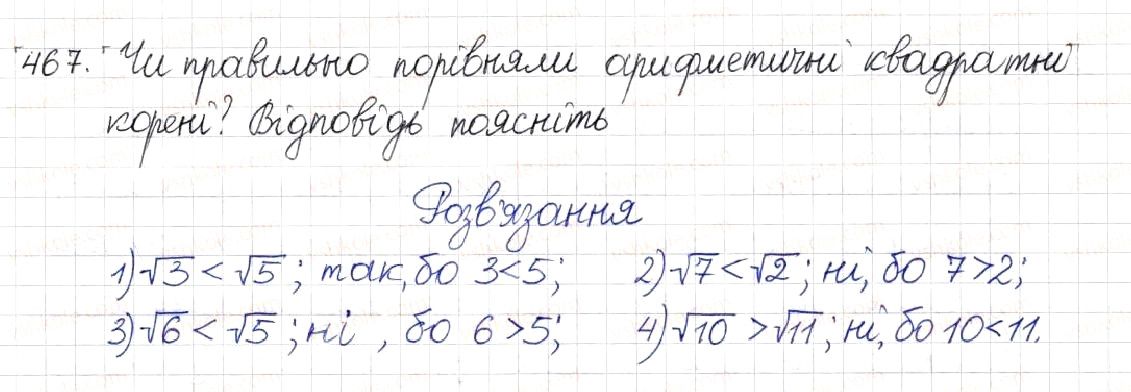 467. Чи правильно порівняли арифметичні квадратні
корені? Відповідь поясніть
Розв'язання
1) √3 < √5; так, бо 3<5; 2) √7 < √2; ні, бо 7>2;
3) √6 < √5; ні, бо 6>5; 4) √10 > √11; ні, бо 10<11.